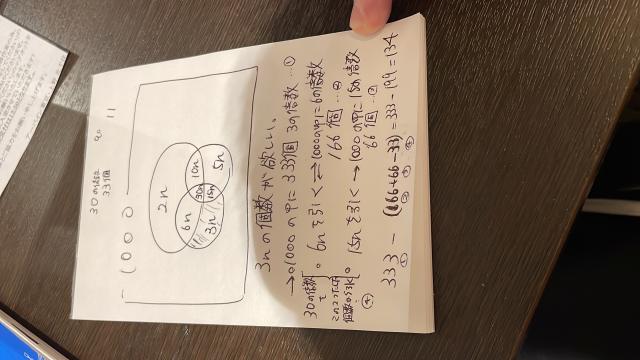 30の倍数
33個
1000
2n
10n
5n
30n
6n
15n
3n
3nの個数が欲しい。
→○1000の中に333個 3の倍数…①
○6nを引く⇔1000の中に6の倍数
166個…②
○15nを引く⇔1000の中に15の倍数
66個…③
30の倍数
④
333-(166+66-33)=333-199=134
① ② ③ ④